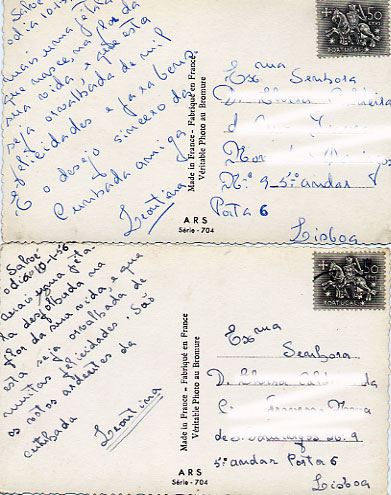 Saboé
o dia 10-1-5
mais uma pétala
que nasce, na flor da
sua vida, e que esta
seja orvalhada de mil
felicidades. Parabens
E o desejo sincero da
Cunhada amiga
Leontina
Made in France - Fabriqué en France
Véritable Photo au Bromure
ARS
Série - 704
50
PORTUGAL
Exma
Senhora
D.
N.º 9-5º andar
Porta 6
Lisboa
Saboé
o dia 10-1-56
mais uma péta
la desfolhada na
flor da sua vida, e que
esta seja orvalhada de
muitas felicidades. São
os votos ardentes da
cunhada
Leontina
Made in France - Fabriqué en France
Véritable Photo au Bromure
ARS
Série - 704
50
PORTUGAL
Exma
Senhora
D.
de Domingos no. 9
5º andar Porta 6
Lisboa